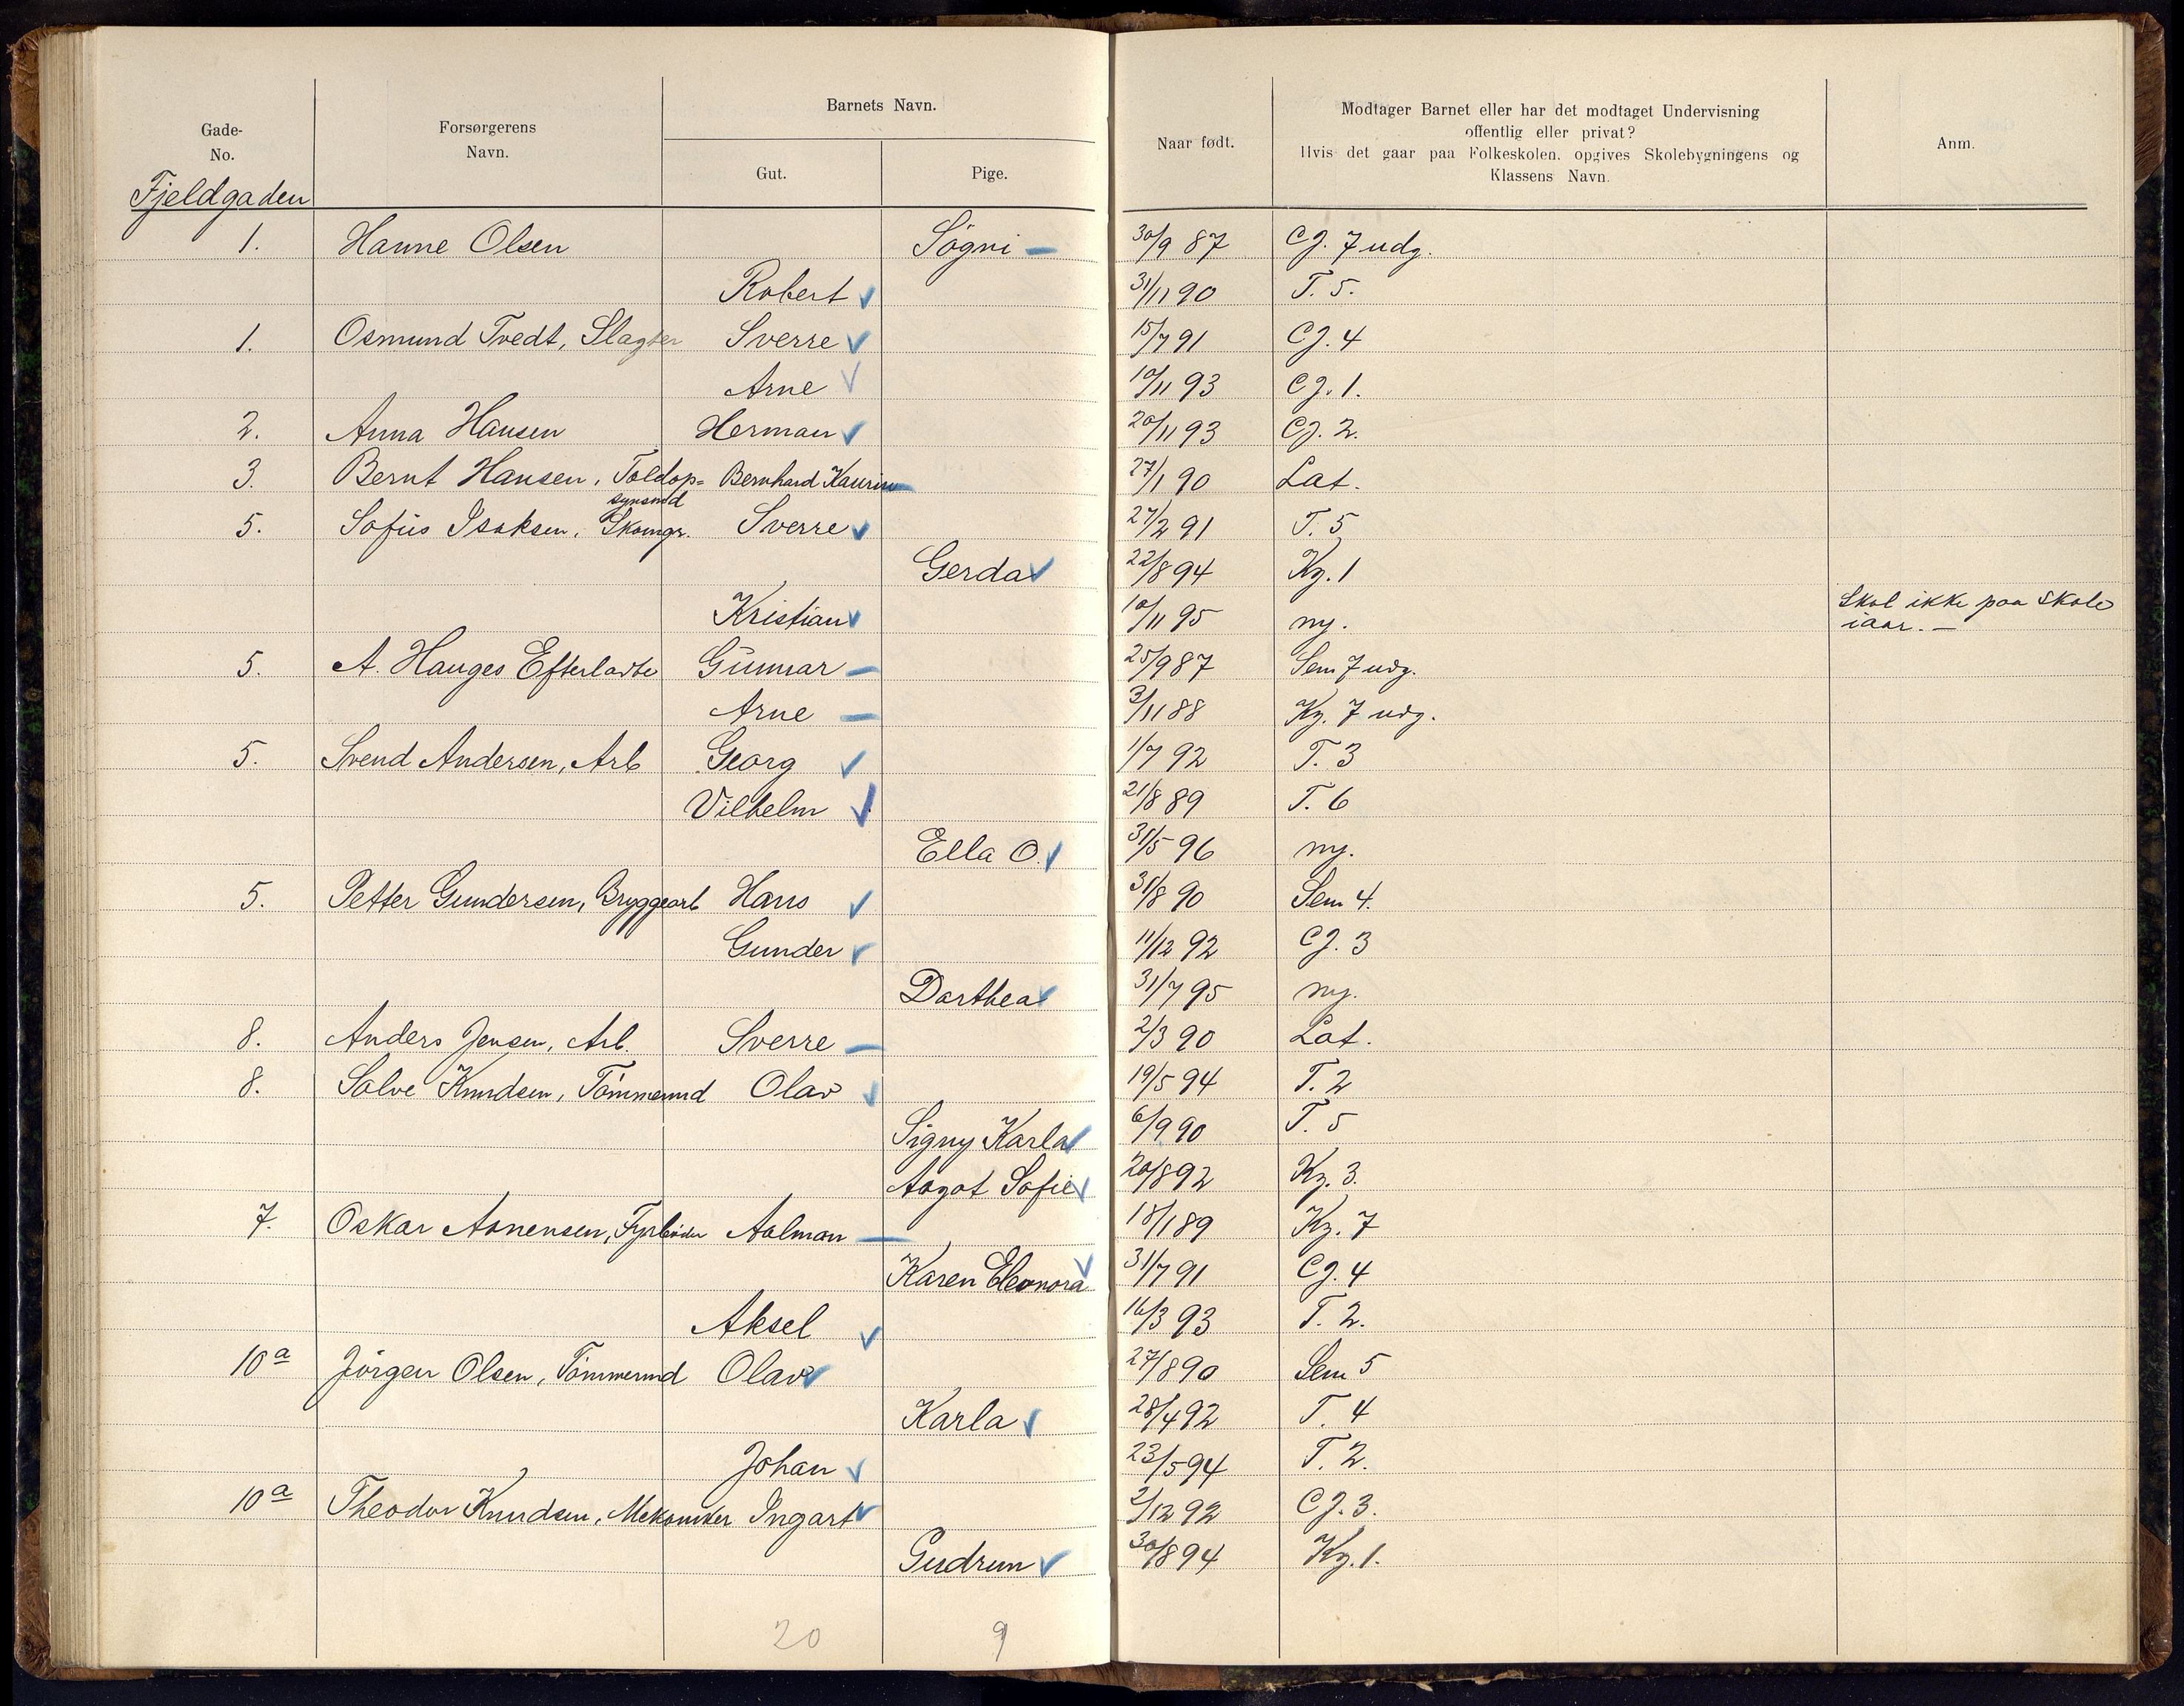 Gade-
No.
Forsørgerens
Navn.
Barnets Navn.
Gut.
Pige.
Naar født.
Modtager Barnet eller har det modtaget Undervisning
offentlig eller privat?
Hvis det gaar paa Folkeskolen, opgives Skolebygningens og
Klassens Navn.
Anm.
Fjeldgaden
1. Hanne Olsen Søgni 30/9 87 Cg. 7 udg.
Robert 31/11 90 T. 5.
1. Osmund Tvedt, Slagter Sverre 15/7 91 Cg. 4
Arne 10/11 93 Cg. 1.
2. Anna Hansen Herman 20/11 93 Cg. 2.
3. Bernt Hansen, Toldop= Bernhard Kaurin 27/1 90 Lat.
synsmd
5. Sofus Isaksen, Skomgr. Sverre 27/2 91 T. 5
Gerda 22/8 94 Kg. 1
Kristian 10/11 95 ny. Skal ikke paa Skole
iaar. —
5. A. Hauges Efterladte Gunnar 25/9 87 Sem 7 udg.
Arne 3/11 88 Kg. 7 udg.
5. Svend Andersen, Arb Georg 1/7 92 T. 3
Vilhelm 21/8 89 T. 6
Ella O. 31/5 96 ny.
5. Petter Gundersen, Bryggearb Hans 31/8 90 Sem 4.
Gunder 11/12 92 Cg. 3
Dorthea 31/7 95 ny.
8. Anders Jensen, Arb. Sverre 2/3 90 Lat.
8. Salve Knudsen, Tømmermd Olav 19/5 94 T. 2
Signy Karla 6/9 90 T. 5
Aagot Sofie 20/8 92 Kg. 3.
7. Oskar Aanensen, Fyrbøder Aalman 18/1 89 Kg. 7
Karen Eleonora 31/7 91 Cg. 4
Aksel 16/3 93 T. 2.
10a Jörgen Olsen, Tømmermd Olav 27/8 90 Sem 5
Karla 28/4 92 T. 4
Johan 23/5 94 T. 2.
10a Theodor Knudsen, Mekaniker Ingart 2/12 92 Cg. 3.
Gudrun 30/8 94 Kg. 1.
20 9